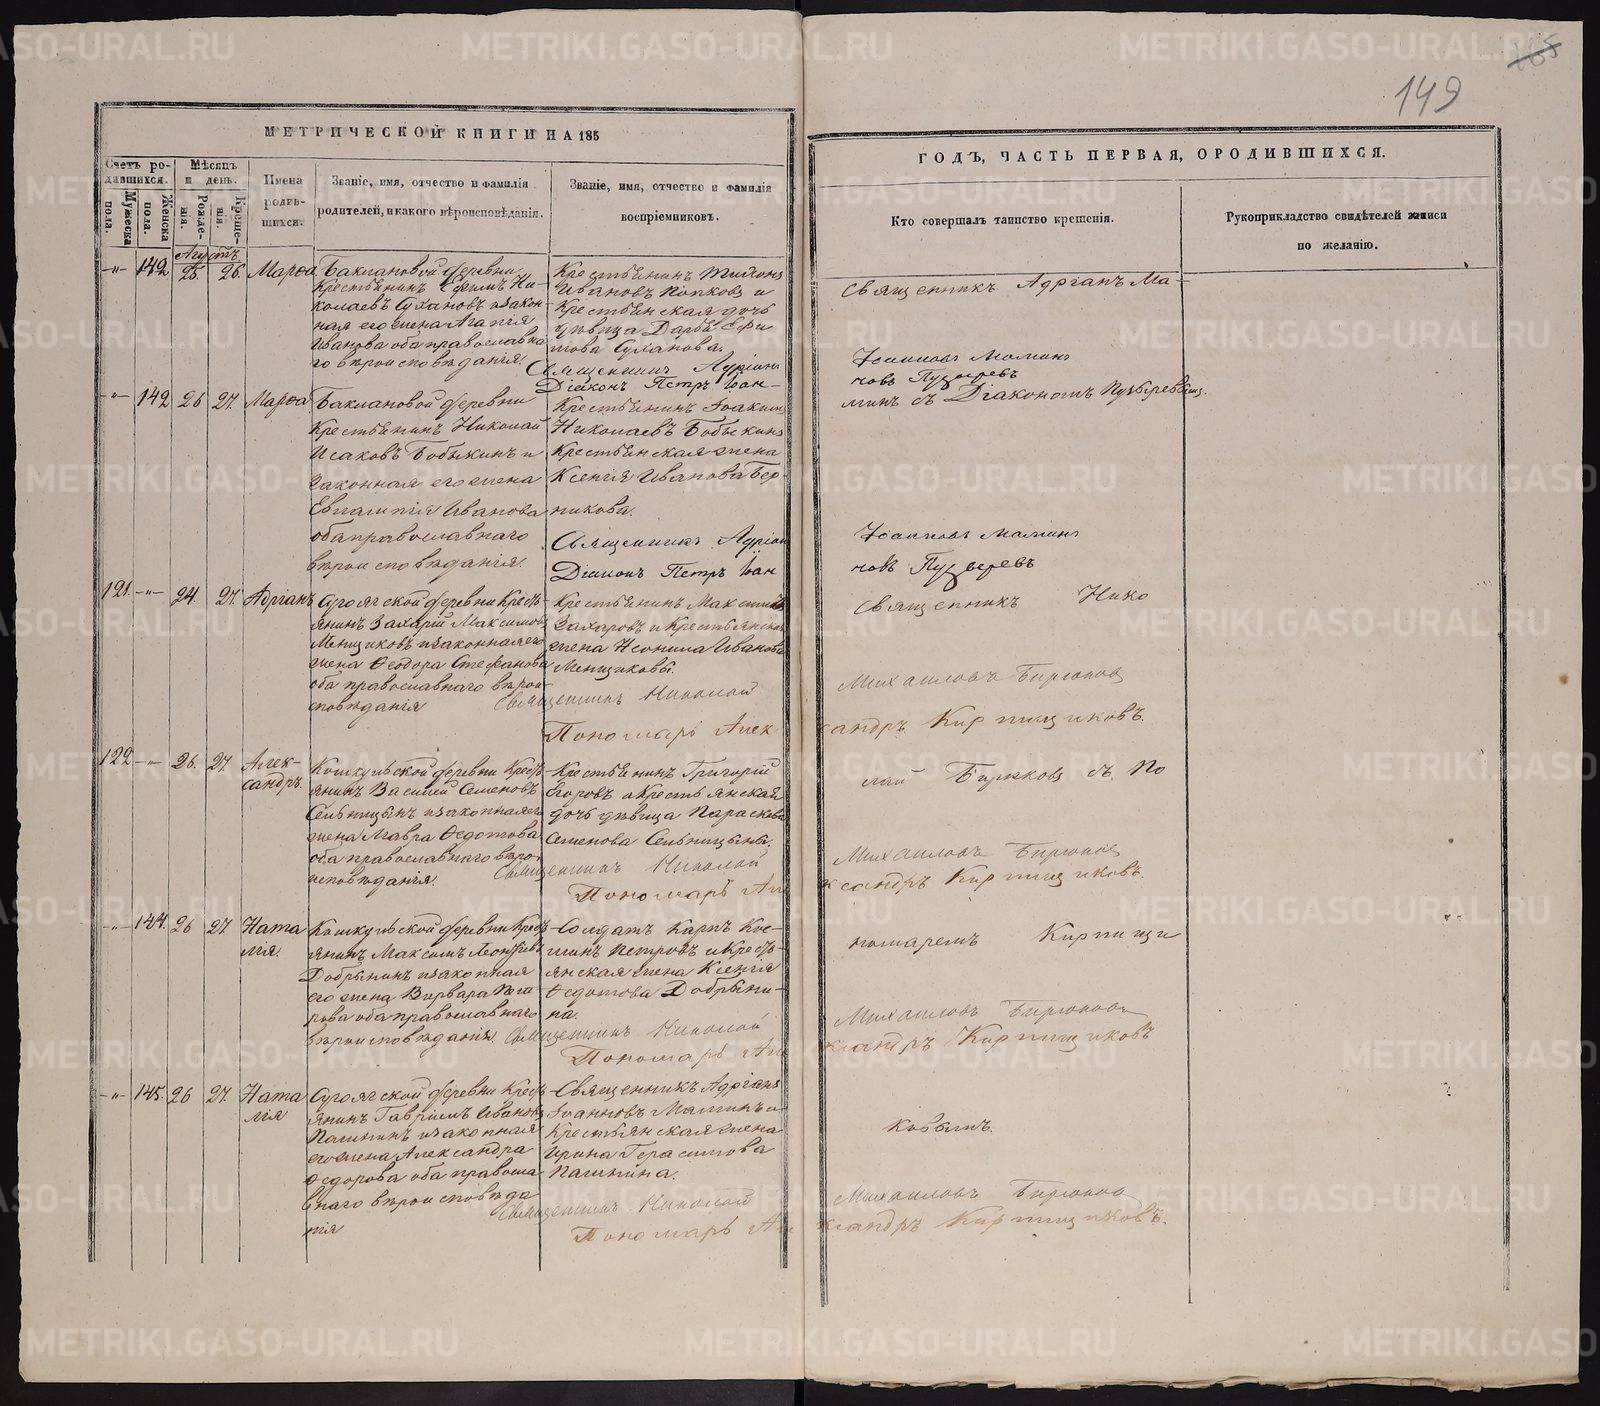 149
МЕТРИЧЕСКОЙ КНИГИ НА 185
ГОДЪ, ЧАСТЬ ПЕРВАЯ, О РОДИВШИХСЯ.
Счетъ ро-
дившихся.
Мѣсяцъ
и день.
Мужеска
пола.
Женска
пола.
Рожде-
нія.
Креще-
нія.
Имена
родив-
шихся.
Званіе, имя, отчество и фамилія
родителей, и какого вѣроисповѣданія.
Званіе, имя, отчество и фамилія
воспріемниковъ.
Кто совершалъ таинство крещенія.
Рукоприкладство свидѣтелей записи
по желанію.
Августъ
-"- 142 25 26 Марѳа
Баклановой деревни
Крестьянинъ Ефимъ Ни-
колаевъ Сухановъ и закон-
ная его жена Агапія
Иванова оба православна
го вѣроисповѣданія.
Крестьянинъ
Ивановъ Попковъ и
Крестьянская дочь
дѣвица Дарья Ефи
мова Суханова.
Священникъ Адріанъ
Діаконъ Петръ Іоан-
Священникъ Адріанъ Ма-
Іоанновъ Маминъ
новъ Пузыревъ
минъ съ Діакономъ Пузыревымъ.
-"- 142 26 27. Марѳа
Баклановой деревни
Крестьянинъ Николай
Исаковъ Бобыкинъ и
законная его жена
Евлампія Иванова
оба православнаго
вѣроисповѣданія.
Крестьянинъ Іоакимъ
Николаевъ Бобыкинъ
Крестьянская жена
Ксенія Иванова Бер-
никова.
Священникъ Адріан
Діаконъ Петръ Іоан
Іоанновъ Маминъ
новъ Пузыревъ
121. -"- 24. 27. Адріанъ
деревни Кресть-
янинъ Захарій Максимовъ
Менщиковъ и законная его
жена Ѳеодора Стефанова
оба православнаго вѣрои
сповѣданія
Крестьянинъ Максимъ
Захаровъ и Крестьянская
жена Неонила Иванова
Менщиковы.
Священникъ Николай
Пономарь Алек
Священникъ Нико
Михаиловъ Бирюков
сандръ Кирпищиковъ.
122 -"- 26. 27. Алек-
сандръ.
Кошкульской деревни Кресть
янинъ Василій Семеновъ
Сельницынъ и законная его
жена Мавра Ѳедотова
оба православнаго вѣро
исповѣданія.
Крестьянинъ Григорій
Егоровъ и Крестьянская
дочь дѣвица Параскева
Семенова Сельницыны.
Священникъ Николай
Пономарь Але
лай Бирюковъ съ По
Михаиловъ Бирюков
ксандръ Кирпищиковъ.
-"- 144. 26 27. Ната
лія.
Кошкульской деревни Кресть
янинъ Максимъ Леонтьевъ
Добрынинъ и законная
его жена Варвара Пет
рова оба православнаго
вѣроисповѣданія.
Солдатъ Карпъ Кос-
минъ Петровъ и Кресть-
янская жена Ксенія
Ѳедотова Добрыни-
на.
Священникъ Николай
Пономарь Але
номаремъ Кирпищи
Михаиловъ Бирюковъ
ксандръ Кирпищиковъ
-"- 145. 26 27. Ната
лія
деревни Кресть
янинъ Гавріилъ Ивановъ
Пашнинъ и законная
его жена Александра
Ѳедорова оба правосла
внаго вѣроисповѣда
нія
Священникъ Адріанъ
Іоанновъ Маминъ и
Крестьянская жена
Ирина Герасимова
Пашнина.
Священникъ Николай
Пономарь Але
ковымъ.
Михаиловъ Бирюков
ксандръ Кирпищиковъ.
METRIKI.GASO-URAL.RU